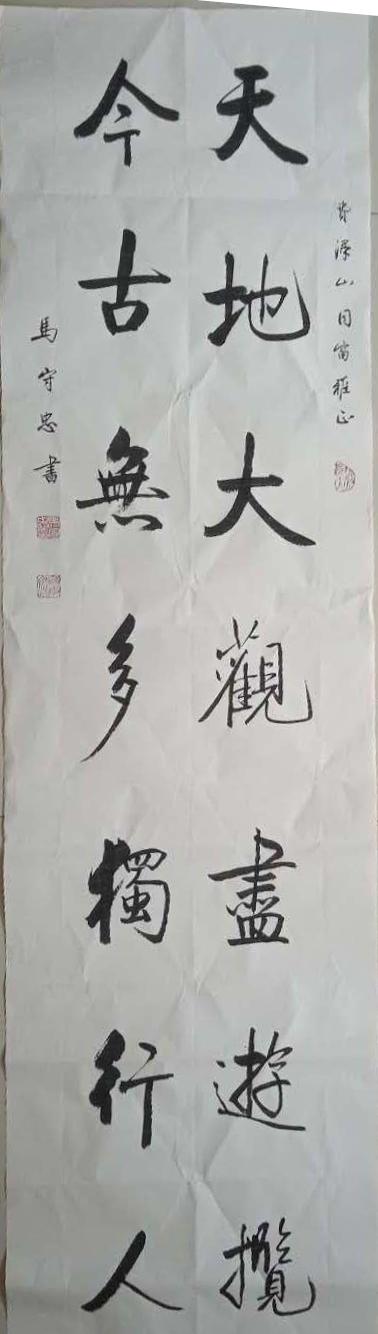 澤山同窗雅正
天地大觀盡遊攬
今古無多獨行人
馬守忠書